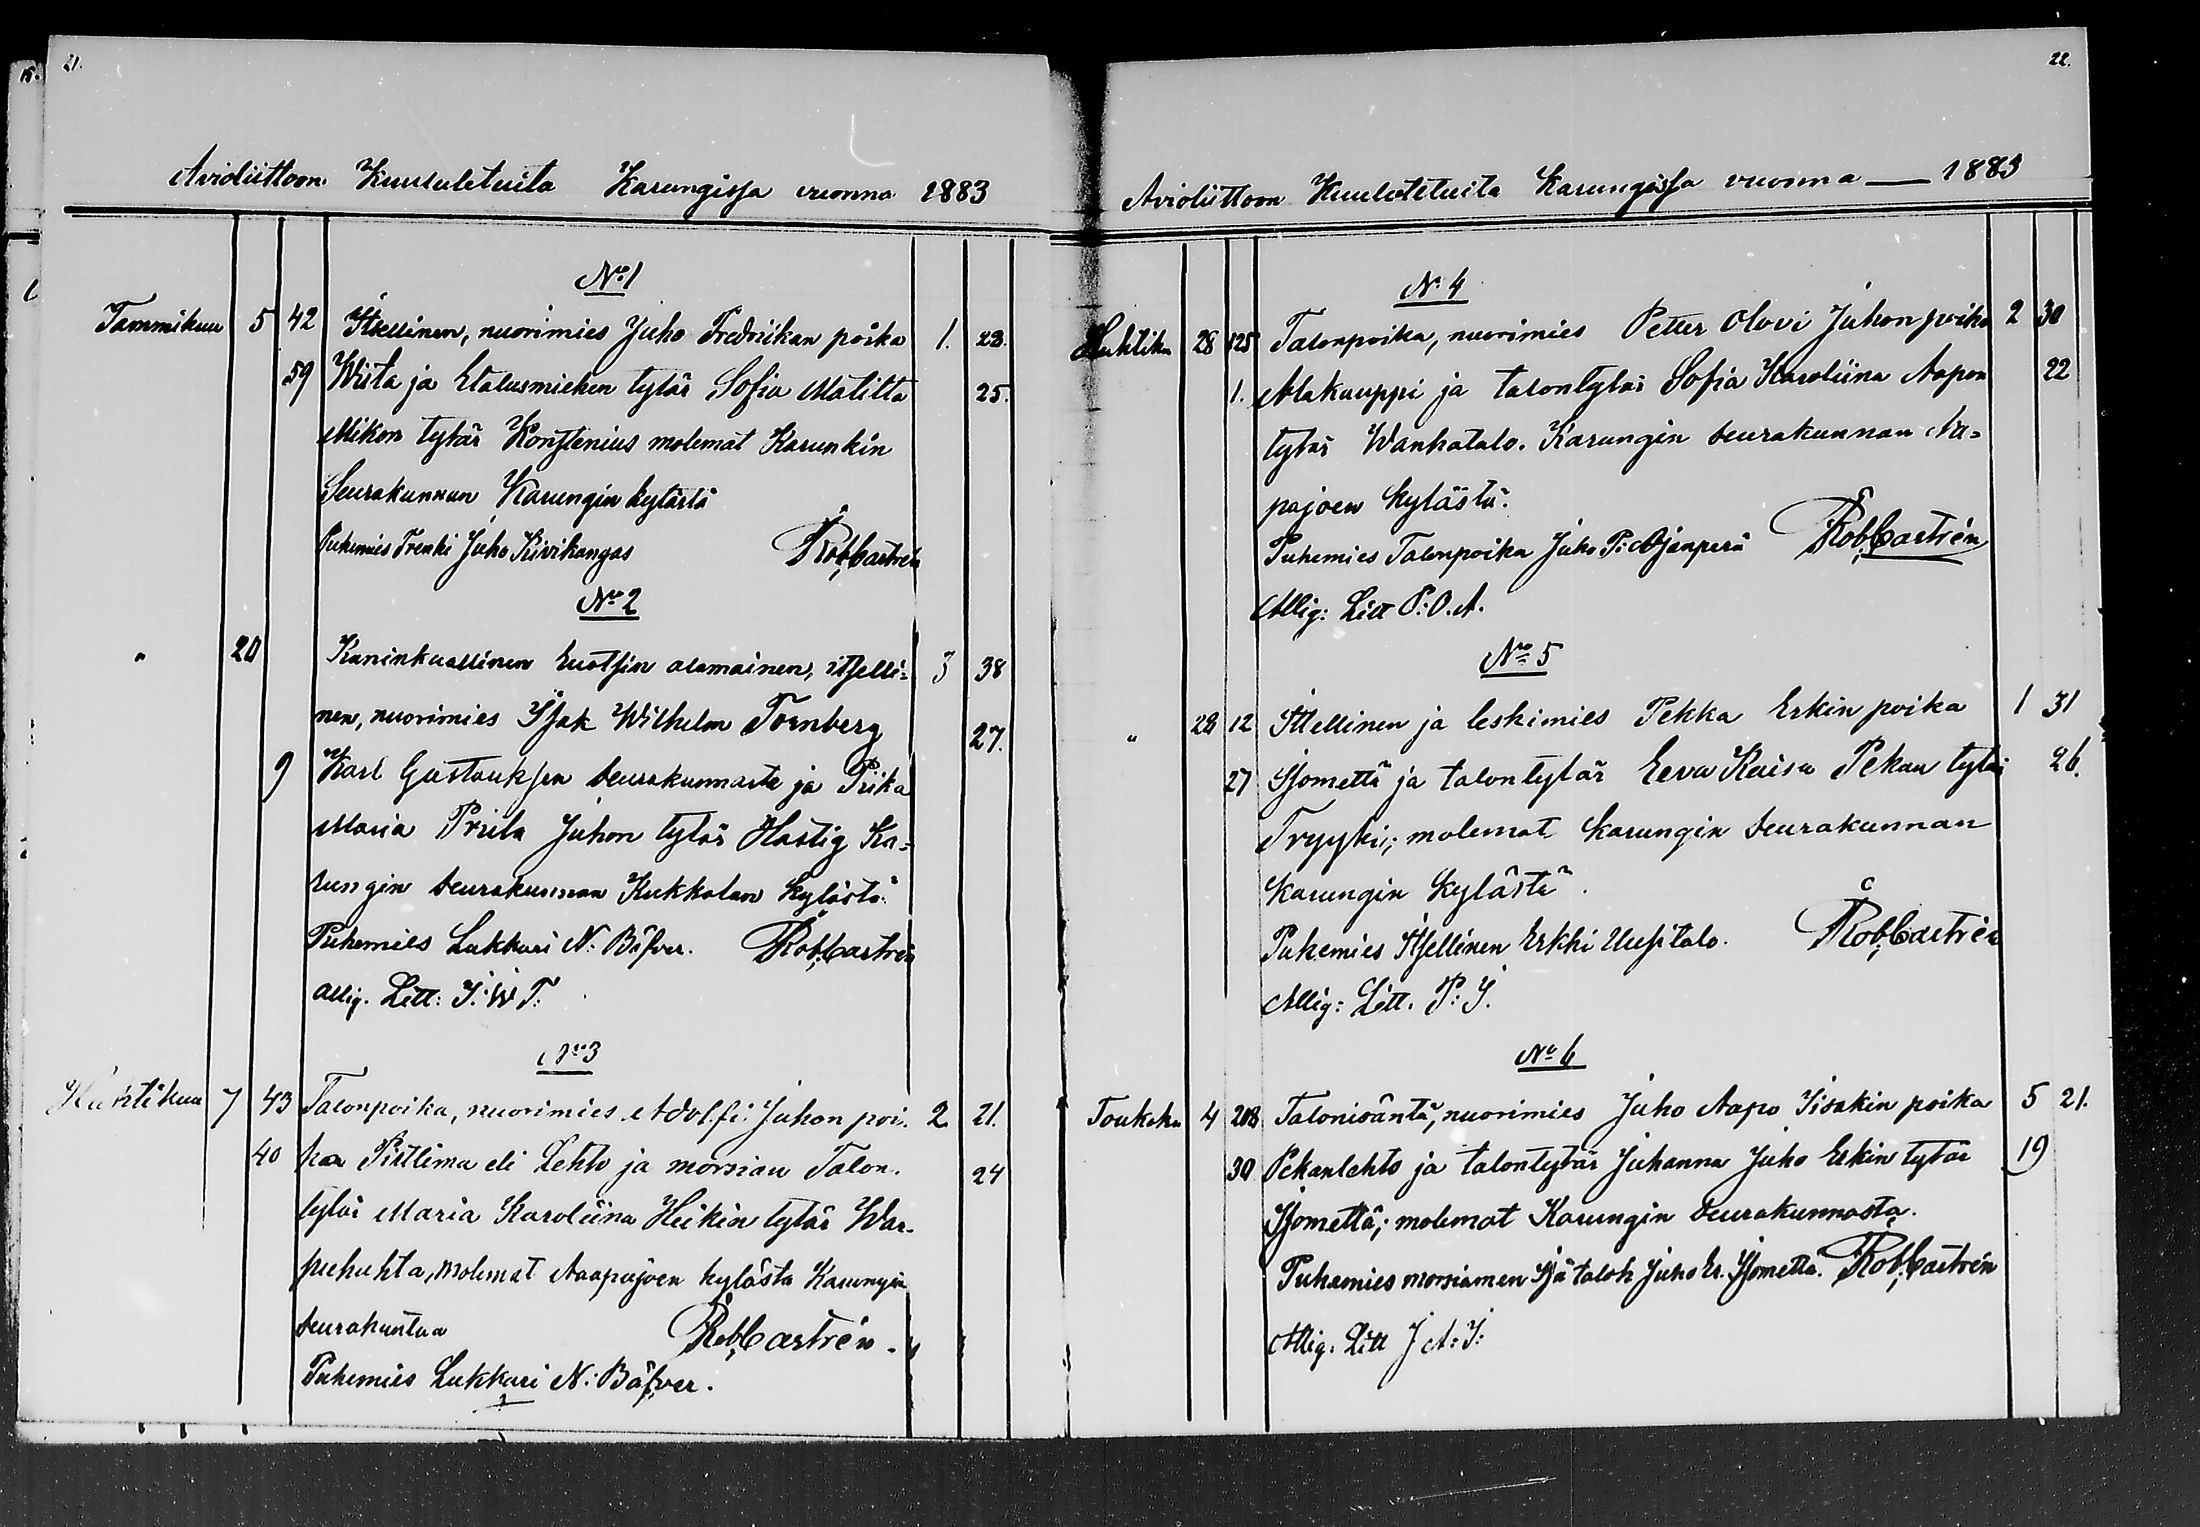 21.
Avioliittoon Kuuluteluita Karungissa vuonna 1883
No 1
Tammikuu 5 42 Itsellinen, nuorimies Juho Fredriikan poika 1. 23.
59 Wista ja Etalusmiehen tytär Sofia Matilta 25.
Mikon tytär Konstenius molemat Karunkin
Seurakunnan Karungin kylästä
Puhemies Trenki Juho Kivikangas Rob. Castrén
No 2
" 20 Kuninkaallinen Ruotsin alamainen, itselli= 3 38
nen, nuorimies Isak Wilhelm Tornberg 27.
9 Karl Gustauksen seurakunnasta ja Piika
Maria Priita Juhon tytär Hastig Ka=
rungin seurakunnan Kukkolan kylästä.
Puhemies Lukkari N: Bäfver. Rob. Castrén
allig. Litt: I: W T:
No 3
Huhtikuu 7 43 Talonpoika, nuorimies Adolfi Juhon poi. 2. 21.
40 ka Pistlima eli Lehto ja morsian Talon. 24
tytär Maria Karoliina Heikin tytär War-
puhuhta, molemat Aaapajoen kylästä Karungin
seurakuntaa Rob. Castrén.
Puhemies Lukkari N: Bäfver.
22.
Avioliittoon Kuuluteluita Karungissa vuonna — 1883
No 4
Huhtiku 28 125 Talonpoika, nuorimies Petter Olovi Juhon poika 2 30
1. Alakauppi ja talontytär Sofia Karoliina Aapon 22
tytär Wanhatalo. Karungin seurakunnan Aa=
pajoen kylästä.
Puhemies Talonpoika Juho P: Ojanperä Rob. Castrén
Allig: Litt P: O. A.
No 5
" 28 12 Itsellinen ja leskimies Pekka Erkin poika 1 31
27 Isometta ja talontytär Eeva Kaisa Pekan tytär 26.
Tryyki; molemat Karungin seurakunnan
Karungin kylästä.
Puhemies Itsellinen Erkki Uusitalo. Rob. Castrén
Allig: Litt. P: I.
No 6
Toukoku 4 208 Talonisäntä, nuorimies Juho Aapo Iisakin poika 5 21.
30 Pekanlehto ja talontytär Juhanna Juho Erkin tytär 19
Isomettä; molemat Karungin seurakunnasta.
Puhemies morsiamen Isä taloh Juho Er. Isometta. Rob. Castrén
Allig. Litt J A: I: